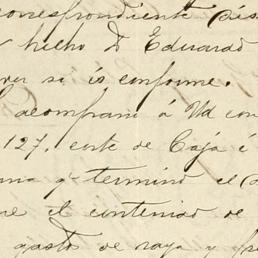 correspondiente
hecho D Eduardo
ver si es conforme.
acompaño á Ud con
127, corte de Caja é
que terminó el
el contenido de
gasto de raya y